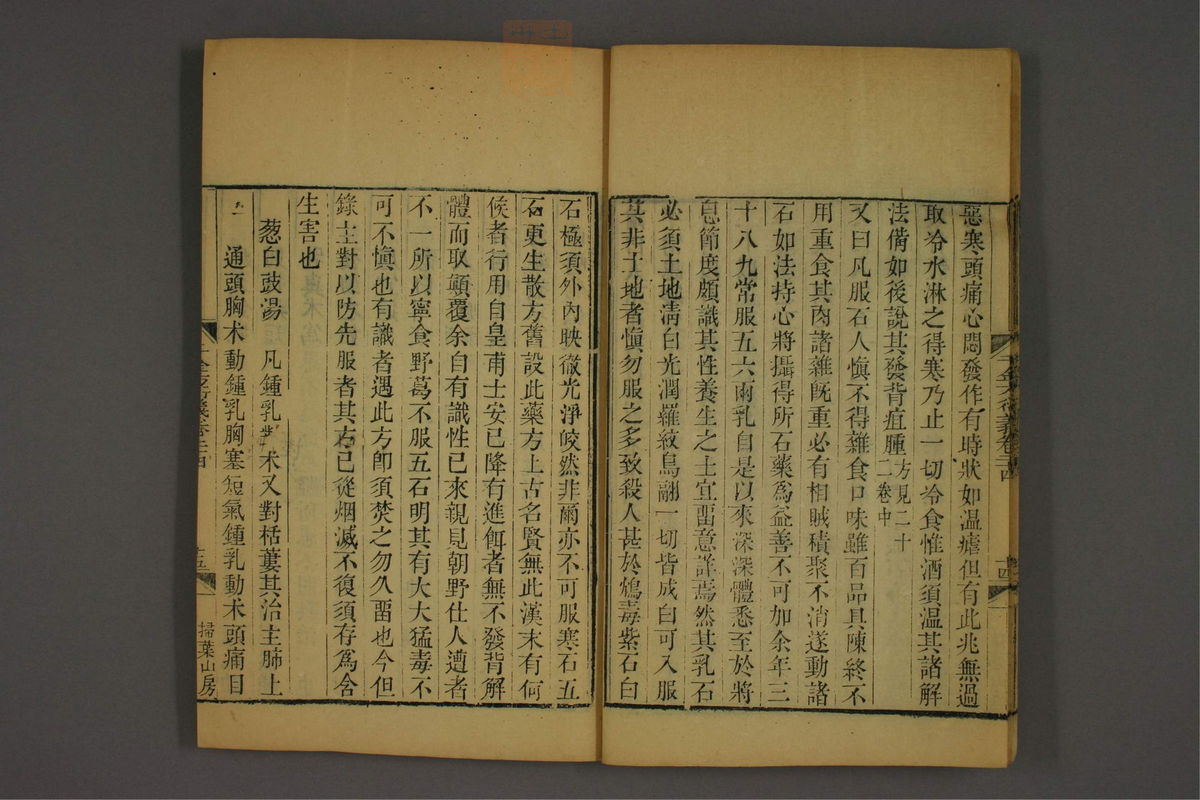 惡寒頭痛心悶發作有時狀如温瘧但有此兆無過
取冷水淋之得寒乃止一切冷食惟酒須温其諸解
法備如後說其發背疽腫方見二十二卷中
又曰凡服石人慎不得雜食口味雖百品具陳終不
用重食其肉諸雜既重必有相賊積聚不消遂動諸
石如法持心將攝得所石藥爲益善不可加余年三
十八九常服五六兩乳自是以來深深體悉至於將
息節度頗識其性養生之士宜畱意詳焉然其乳石
必須土地淸白光潤羅紋鳥翮一切皆成白可入服
其非土地者慎勿服之多致殺人甚於鴆毒紫石白
石極須外內映徹光淨皎然非爾亦不可服寒石五
石更生散方舊說此藥方上古名賢無此漢末有何
侯者行用自皇甫士安已降有進餌者無不發背解
體而取顚覆余自有識性已來親見朝野仕人遭者
不一所以寧食野葛不服五石明其有大大猛毒不
可不愼也有識者遇此方卽須焚之勿久畱也今但
錄主對以防先服者其方已從烟滅不復須存爲含
生害也
葱白豉湯 凡鍾乳對术又對栝蔞其治主肺上
通頭胸术動鍾乳胸塞短氣鍾乳動术頭痛目
掃葉山房